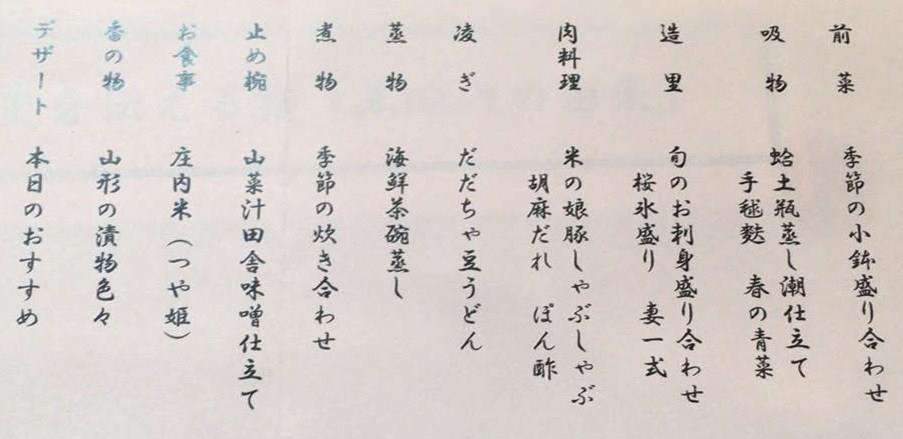 前菜
季節の小鉢盛り合わせ
吸物
蛤土瓶蒸し潮仕立て
手毬麩 春の青菜
造里
旬のお刺身盛り合わせ
桜氷盛り 妻一式
肉料理
米の娘豚しゃぶしゃぶ
胡麻だれ ぽん酢
凌ぎ
だだちゃ豆うどん
蒸物
海鮮茶碗蒸し
煮物
季節の炊き合わせ
止め椀
山菜汁田舎味噌仕立て
お食事
庄内米(つや姫)
香の物
山形の漬物色々
デザート
本日のおすすめ